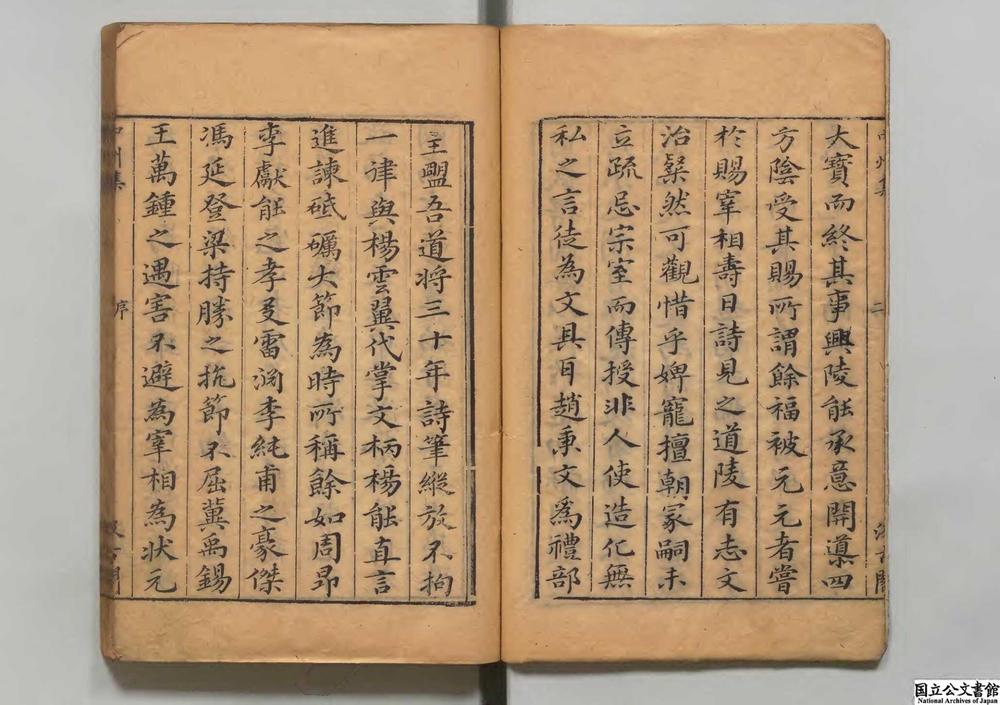 大寶而終其事興陵能承意開導四
方陰受其賜所謂餘福被元元者嘗
於賜宰相壽日詩見之道陵有志文
治粲然可觀惜乎婢寵擅朝冢嗣未
立疏忌宗室而傳授非人使造化無
私之言徒為文具耳趙秉文為禮部
主盟吾道將三十年詩筆縱放不拘
一律與楊雲翼代掌文柄楊能直言
進諫砥礪大節為時所稱餘如周昂
李獻能之孝友雷淵李純甫之豪傑
馮延登梁持勝之抗節不屈冀禹錫
王萬鍾之遇害不避為宰相為狀元
序
国立公文書館
National Archives of Japan